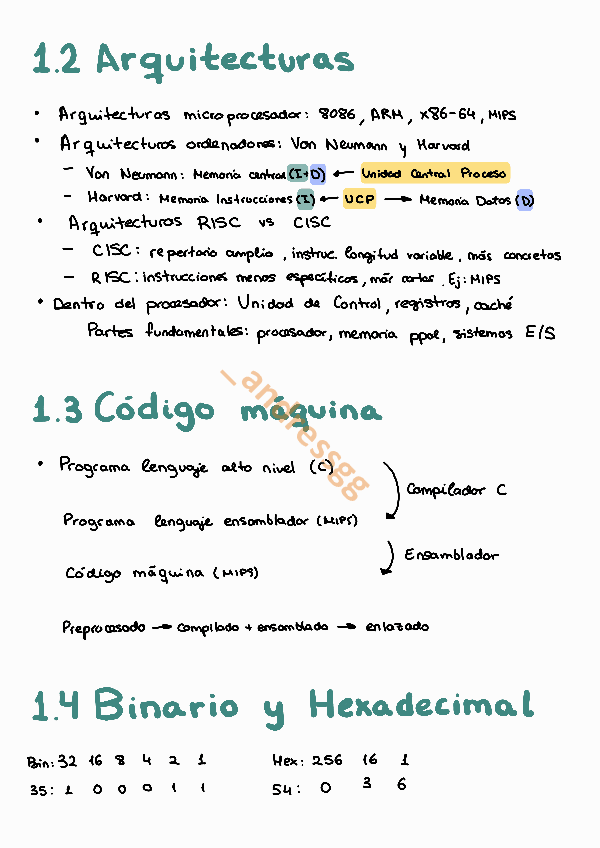 1.2 Arquitecturas
• Arquitecturas microprocesador: 8086, ARM, x86-64, MIPS
• Arquitecturas ordenadores: Von Neumann y Harvard
– Von Neumann: Memoria central (I+D) ← Unidad Central Proceso
– Harvard: Memoria Instrucciones (I) ← UCP → Memoria Datos (D)
• Arquitecturas RISC vs CISC
– CISC: repertorio amplio, instruc. longitud variable, más concretas
– RISC: instrucciones menos específicas, más cortas. Ej: MIPS
• Dentro del procesador: Unidad de Control, registros, caché
Partes fundamentales: procesador, memoria ppal, sistemas E/S
_andressgg
1.3 Código máquina
• Programa lenguaje alto nivel (C)
Compilador C
Programa lenguaje ensamblador (MIPS)
Ensamblador
Código máquina (MIPS)
Preprocesado → compilado + ensamblado → enlazado
1.4 Binario y Hexadecimal
Bin: 32 16 8 4 2 1 Hex: 256 16 1
35: 1 0 0 0 1 1 54: 0 3 6